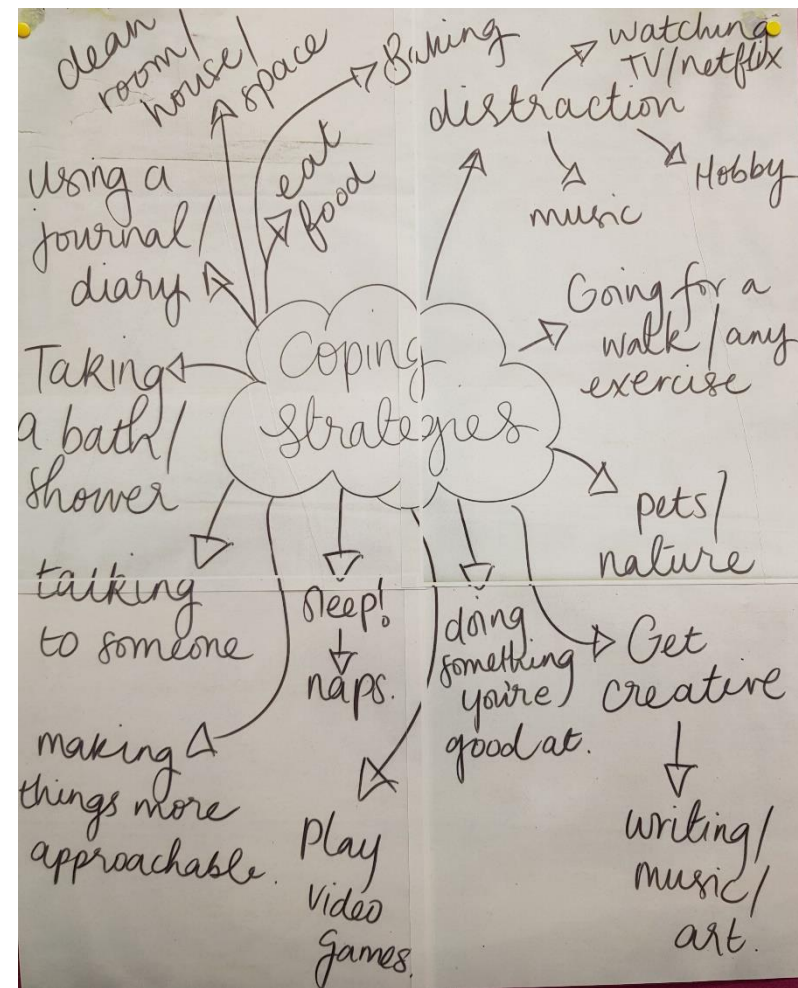 clean
room/
house/
space
Baking
eat
food
distraction
watching
TV/netflix
music
Hobby
using a
journal/
diary
Going for a
walk/any
exercise
Coping
Strategies
Taking
a bath/
shower
pets/
nature
talking
to someone
sleep!
naps.
doing
something
you're
good at.
Get
creative
writing/
music/
art.
making
things more
approachable.
Play
video
games.